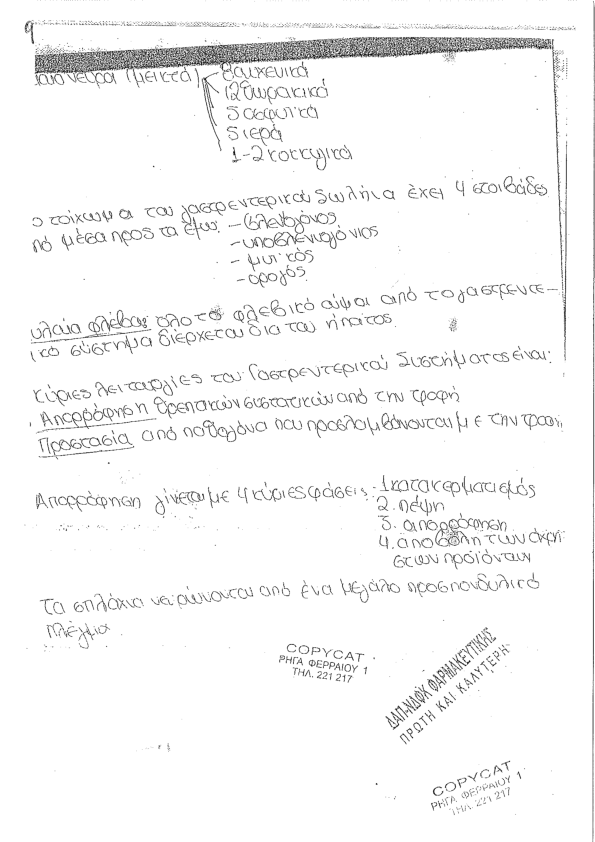 9
νευρα (μεικτά) 8 αυχενικά
12 θωρακικά
5 οσφυικά
5 ιερά
1-2 κοκκυγικά
ο τοίχωμα του γαστρεντερικού σωλήνα έχει 4 στοιβάδες
πό μέσα προς τα έξω: - βλεννογόνος
- υποβλεννογόνιος
- μυικός
- ορογός
υλαία φλέβα: όλο το φλεβικό αίμα από το γαστρεντε-
ικό σύστημα διέρχεται δια του ήπατος
κύριες λειτουργίες του Γαστρεντερικού Συστήματος είναι:
Απορρόφηση θρεπτικών συστατικών από την τροφή
Προστασία από παθογόνα που προσλαμβάνονται με την τροφή
Απορρόφηση γίνεται με 4 κύριες φάσεις: 1 κατακερματισμός
2. πέψη
3. απορρόφηση
4. αποβολή των άχρη
στων προϊόντων
Τα σπλάχνα νευρώνονται από ένα μεγάλο προσπονδυλικό
πλέγμα
COPYCAT
ΡΗΓΑ ΦΕΡΡΑΙΟΥ 1
ΤΗΛ. 221 217
ΔΑΠ-ΝΔΦΚ ΦΑΡΜΑΚΕΥΤΙΚΗΣ
ΠΡΩΤΗ ΚΑΙ ΚΑΛΥΤΕΡΗ
COPYCAT
ΡΗΓΑ ΦΕΡΡΑΙΟΥ 1
ΤΗΛ. 221 217